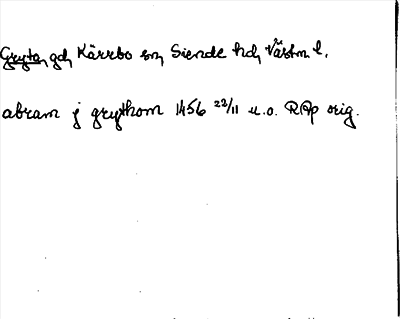 Gryta, gd, Kärrbo sn, Siende hd, Västm l.
abram j grythom 1456 22/11 u.o. RAp orig.